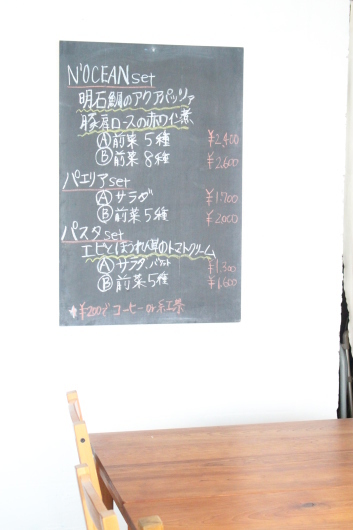 N'OCEAN set
明石鯛のアクアパッツァ
豚肩ロースの赤ワイン煮
Ⓐ前菜5種 ¥2,400
Ⓑ前菜8種 ¥2,600
パエリアset
Ⓐサラダ ¥1,700
Ⓑ前菜5種 ¥2,000
パスタset
エビとほうれん草のトマトクリーム
Ⓐサラダ、バゲット ¥1,300
Ⓑ前菜5種 ¥1,600
★¥200でコーヒーor紅茶